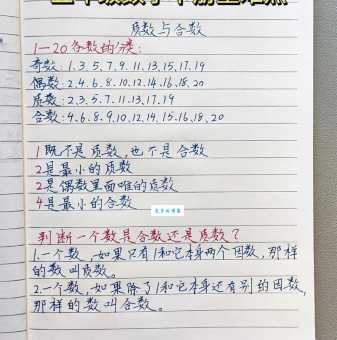 质数与合数
1—20各数的分类:
奇数:1.3.5.7.9.11.13.15.17.19
偶数:2.4.6.8.10.12.14.16.18.20
质数:2.3.5.7.11.13.17.19
合数:4.6.8.9.10.12.14.15.16.18.20
1既不是质数,也不是合数
2是最小的质数
2是偶数里面唯的质数
4是最小的合数
判断一个数是合数还是质数?
1.一个数,如果只有1和它本身两个因数,那样
的数叫质数。
2.一个数,如果除了1和本身还有别的因数,
那样的数叫合数。